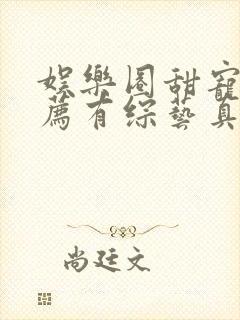 娛樂圈甜寵
薦有綜藝真
尚廷文